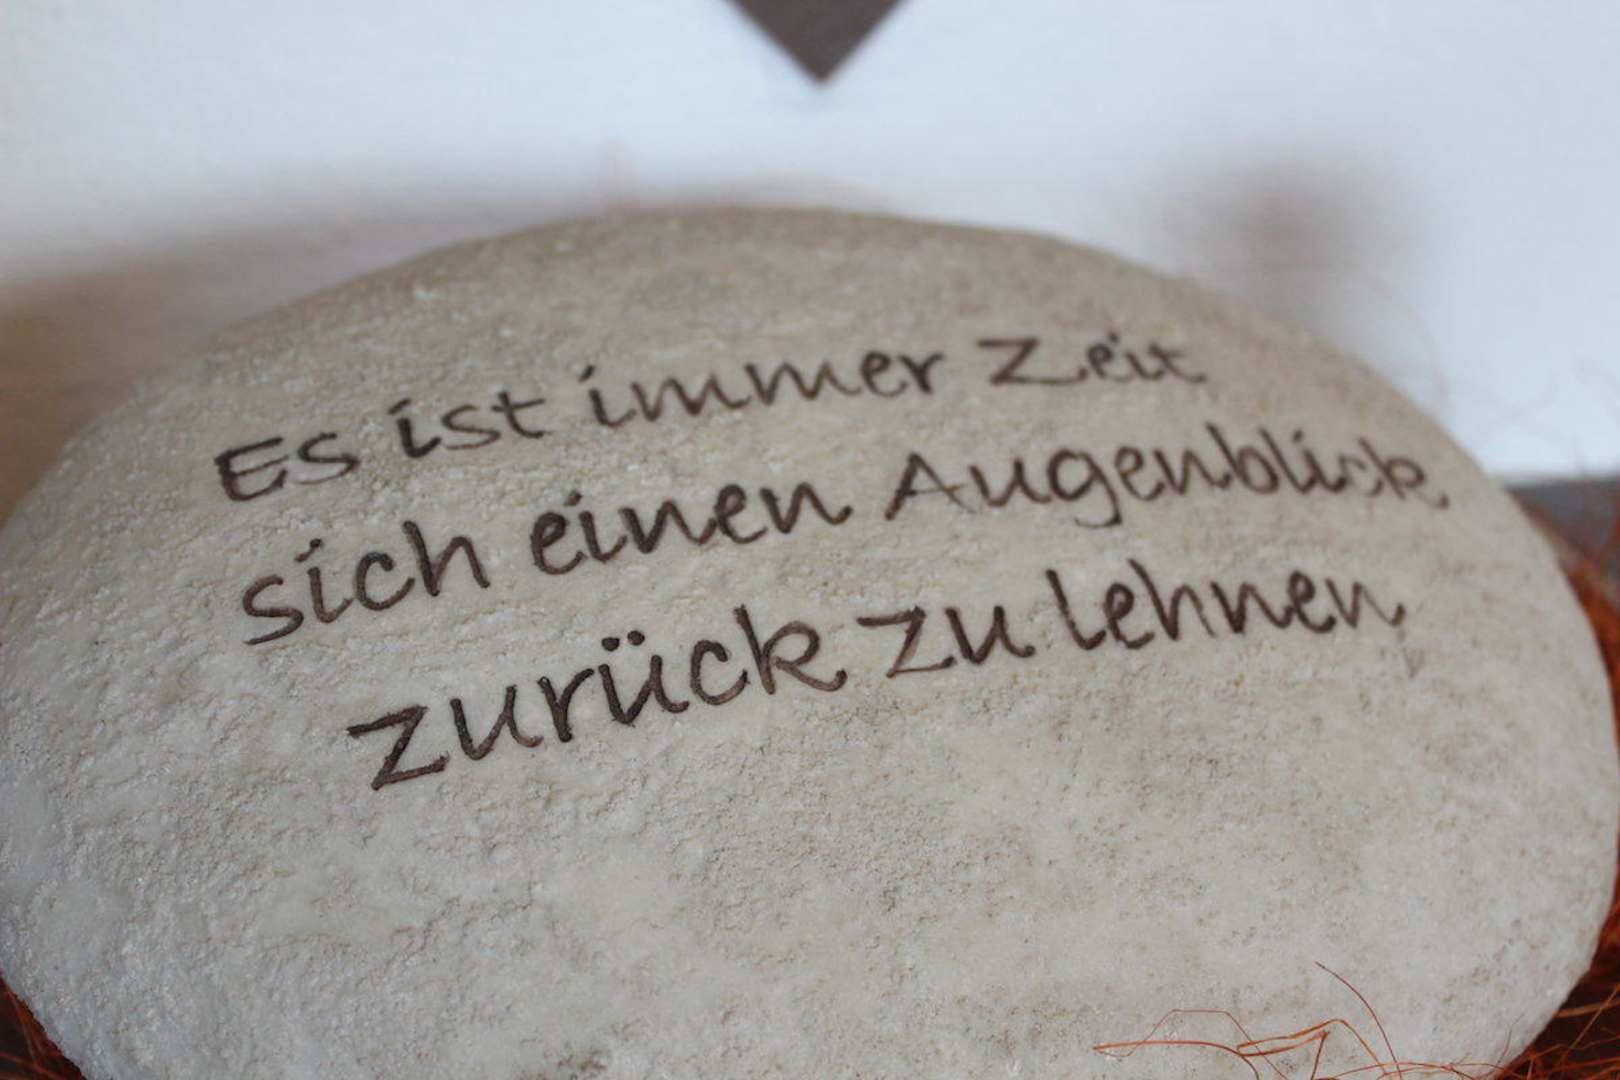 Es ist immer Zeit
sich einen Augenblick
zurück zu lehnen